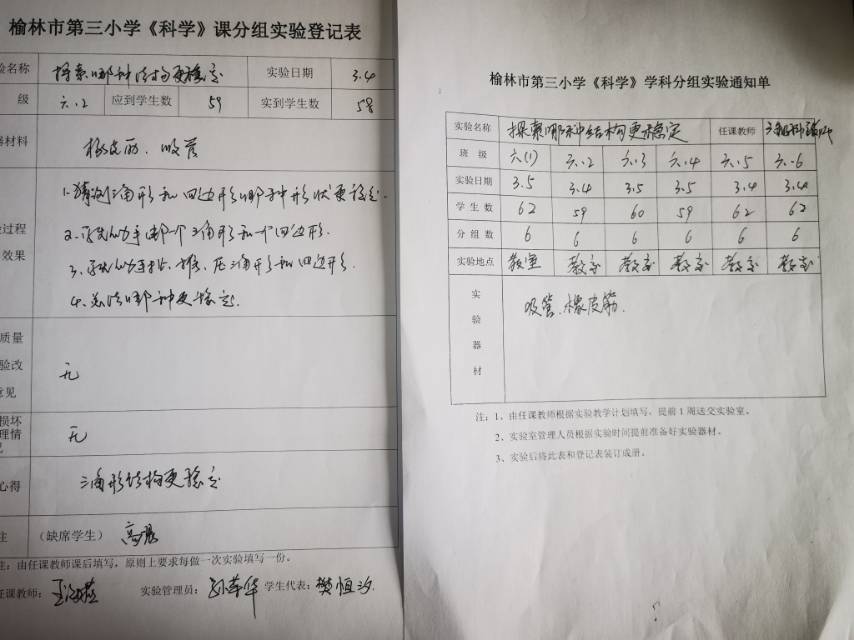 榆林市第三小学《科学》课分组实验登记表
验名称 探索哪种结构更稳定 实验日期 3.4
级 六.2 应到学生数 59 实到学生数 58
器材料 橡皮筋、吸管
验过程
效果
1.猜测三角形和四边形哪种形状更稳定.
2.动手做一个三角形和一个四边形.
3、动手拉、推、压三角形和四边形.
4.总结哪种更稳定.
质量
验改
意见
无
损坏
理情
况
无
心得 三角形结构更稳定
注 (缺席学生) 高
注:由任课教师课后填写,原则上要求每做一次实验填写一份。
任课教师: 实验管理员: 孙苹华 学生代表: 樊恒汐
榆林市第三小学《科学》学科分组实验通知单
实验名称 探索哪种结构更稳定 任课教师
班 级 六(1) 六.2 六.3 六.4 六.5 六.6
实验日期 3.5 3.4 3.5 3.5 3.4 3.4
学 生 数 62 59 60 59 62 62
分 组 数 6 6 6 6 6 6
实验地点 教室 教室 教室 教室 教室 教室
实
验
器
材
吸管、橡皮筋.
注:1、由任课教师根据实验教学计划填写,提前1周送交实验室。
2、实验室管理人员根据实验时间提前准备好实验器材。
3、实验后将此表和登记表装订成册。